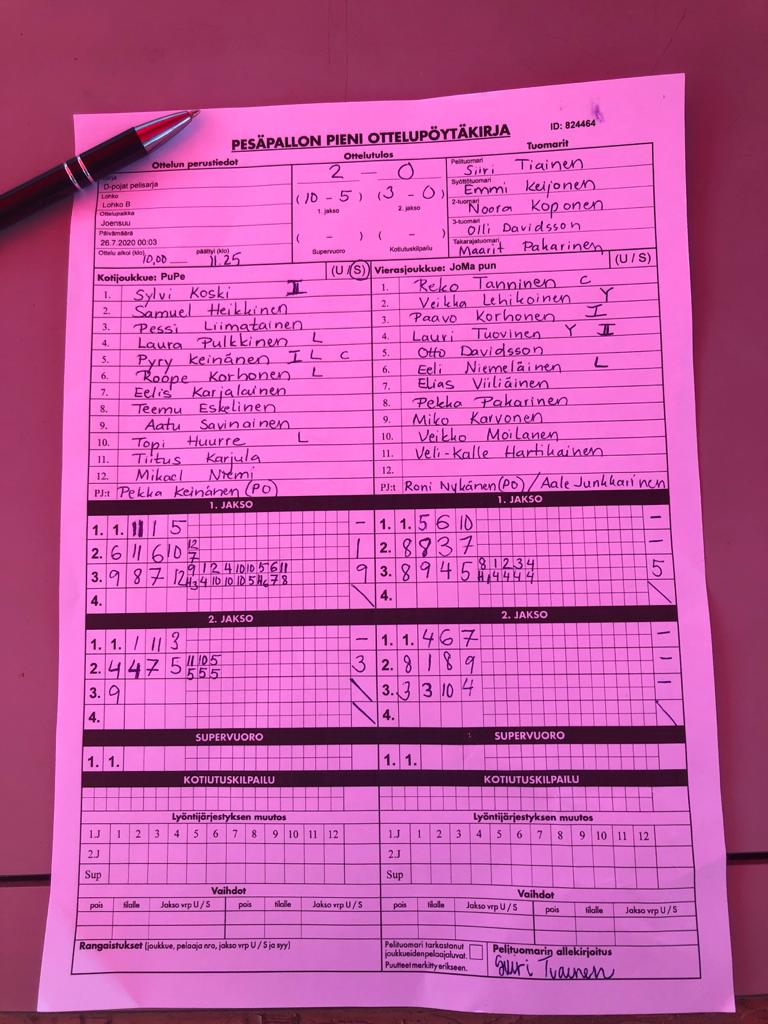 PESÄPALLON PIENI OTTELUPÖYTÄKIRJA
ID: 824464
Ottelun perustiedot
Sarja
D-pojat pelisarja
Lohko
Lohko B
Ottelupaikka
Joensuu
Päivämäärä
26.7.2020 00:03
Ottelu alkoi (klo) 10.00 päättyi (klo) 11.25
Ottelutulos
2 - 0
(10 - 5) (3 - 0)
1. jakso 2. jakso
( - ) ( - )
Supervuoro Kotiutuskilpailu
Tuomarit
Pelituomari Siiri Tiainen
Syöttötuomari Emmi Keijonen
2-tuomari Noora Koponen
3-tuomari Olli Davidsson
Takarajatuomari Maarit Pakarinen
Kotijoukkue: PuPe (U / S)
1. Sylvi Koski II
2. Samuel Heikkinen
3. Pessi Liimatainen
4. Laura Pulkkinen L
5. Pyry Keinänen I L C
6. Roope Korhonen L
7. Eelis Karjalainen
8. Teemu Eskelinen
9. Aatu Savinainen
10. Topi Huurre L
11. Tiitus Karjula
12. Mikael Niemi
PJ:t Pekka Keinänen (PO)
Vierasjoukkue: JoMa pun (U / S)
1. Reko Tanninen C
2. Veikka Lehikoinen Y
3. Paavo Korhonen I
4. Lauri Tuovinen Y II
5. Otto Davidsson
6. Eeli Niemeläinen L
7. Elias Viiliäinen
8. Pekka Pakarinen
9. Miko Karvonen
10. Veikko Moilanen
11. Veli-Kalle Hartikainen
12.
PJ:t Roni Nykänen (PO) / Aale Junkkarinen
1. JAKSO
1. 1. 11 1 5 -
2. 6 11 6 10 12 7 1
3. 9 8 7 12 9
4.
1. JAKSO
1. 1. 5 6 10 -
2. 8 8 3 7 -
3. 8 9 4 5 8 1 2 3 4 5
4.
2. JAKSO
1. 1. 1 11 3 -
2. 4 4 7 5 11 10 5 5 5 5 3
3. 9
4.
2. JAKSO
1. 1. 4 6 7 -
2. 8 1 8 9 -
3. 3 3 10 4 -
4.
SUPERVUORO
1. 1.
SUPERVUORO
1. 1.
KOTIUTUSKILPAILU
KOTIUTUSKILPAILU
Lyöntijärjestyksen muutos
1.J 1 2 3 4 5 6 7 8 9 10 11 12
2.J
Sup
Lyöntijärjestyksen muutos
1.J 1 2 3 4 5 6 7 8 9 10 11 12
2.J
Sup
Vaihdot
pois tilalle Jakso vrp U / S pois tilalle Jakso vrp U / S
Vaihdot
pois tilalle Jakso vrp U / S pois tilalle Jakso vrp U / S
Rangaistukset (joukkue, pelaaja nro, jakso vrp U / S ja syy)
Pelituomari tarkastanut
joukkueiden pelaajaluvat.
Puutteet merkitty erikseen.
Pelituomarin allekirjoitus
Siiri Tiainen